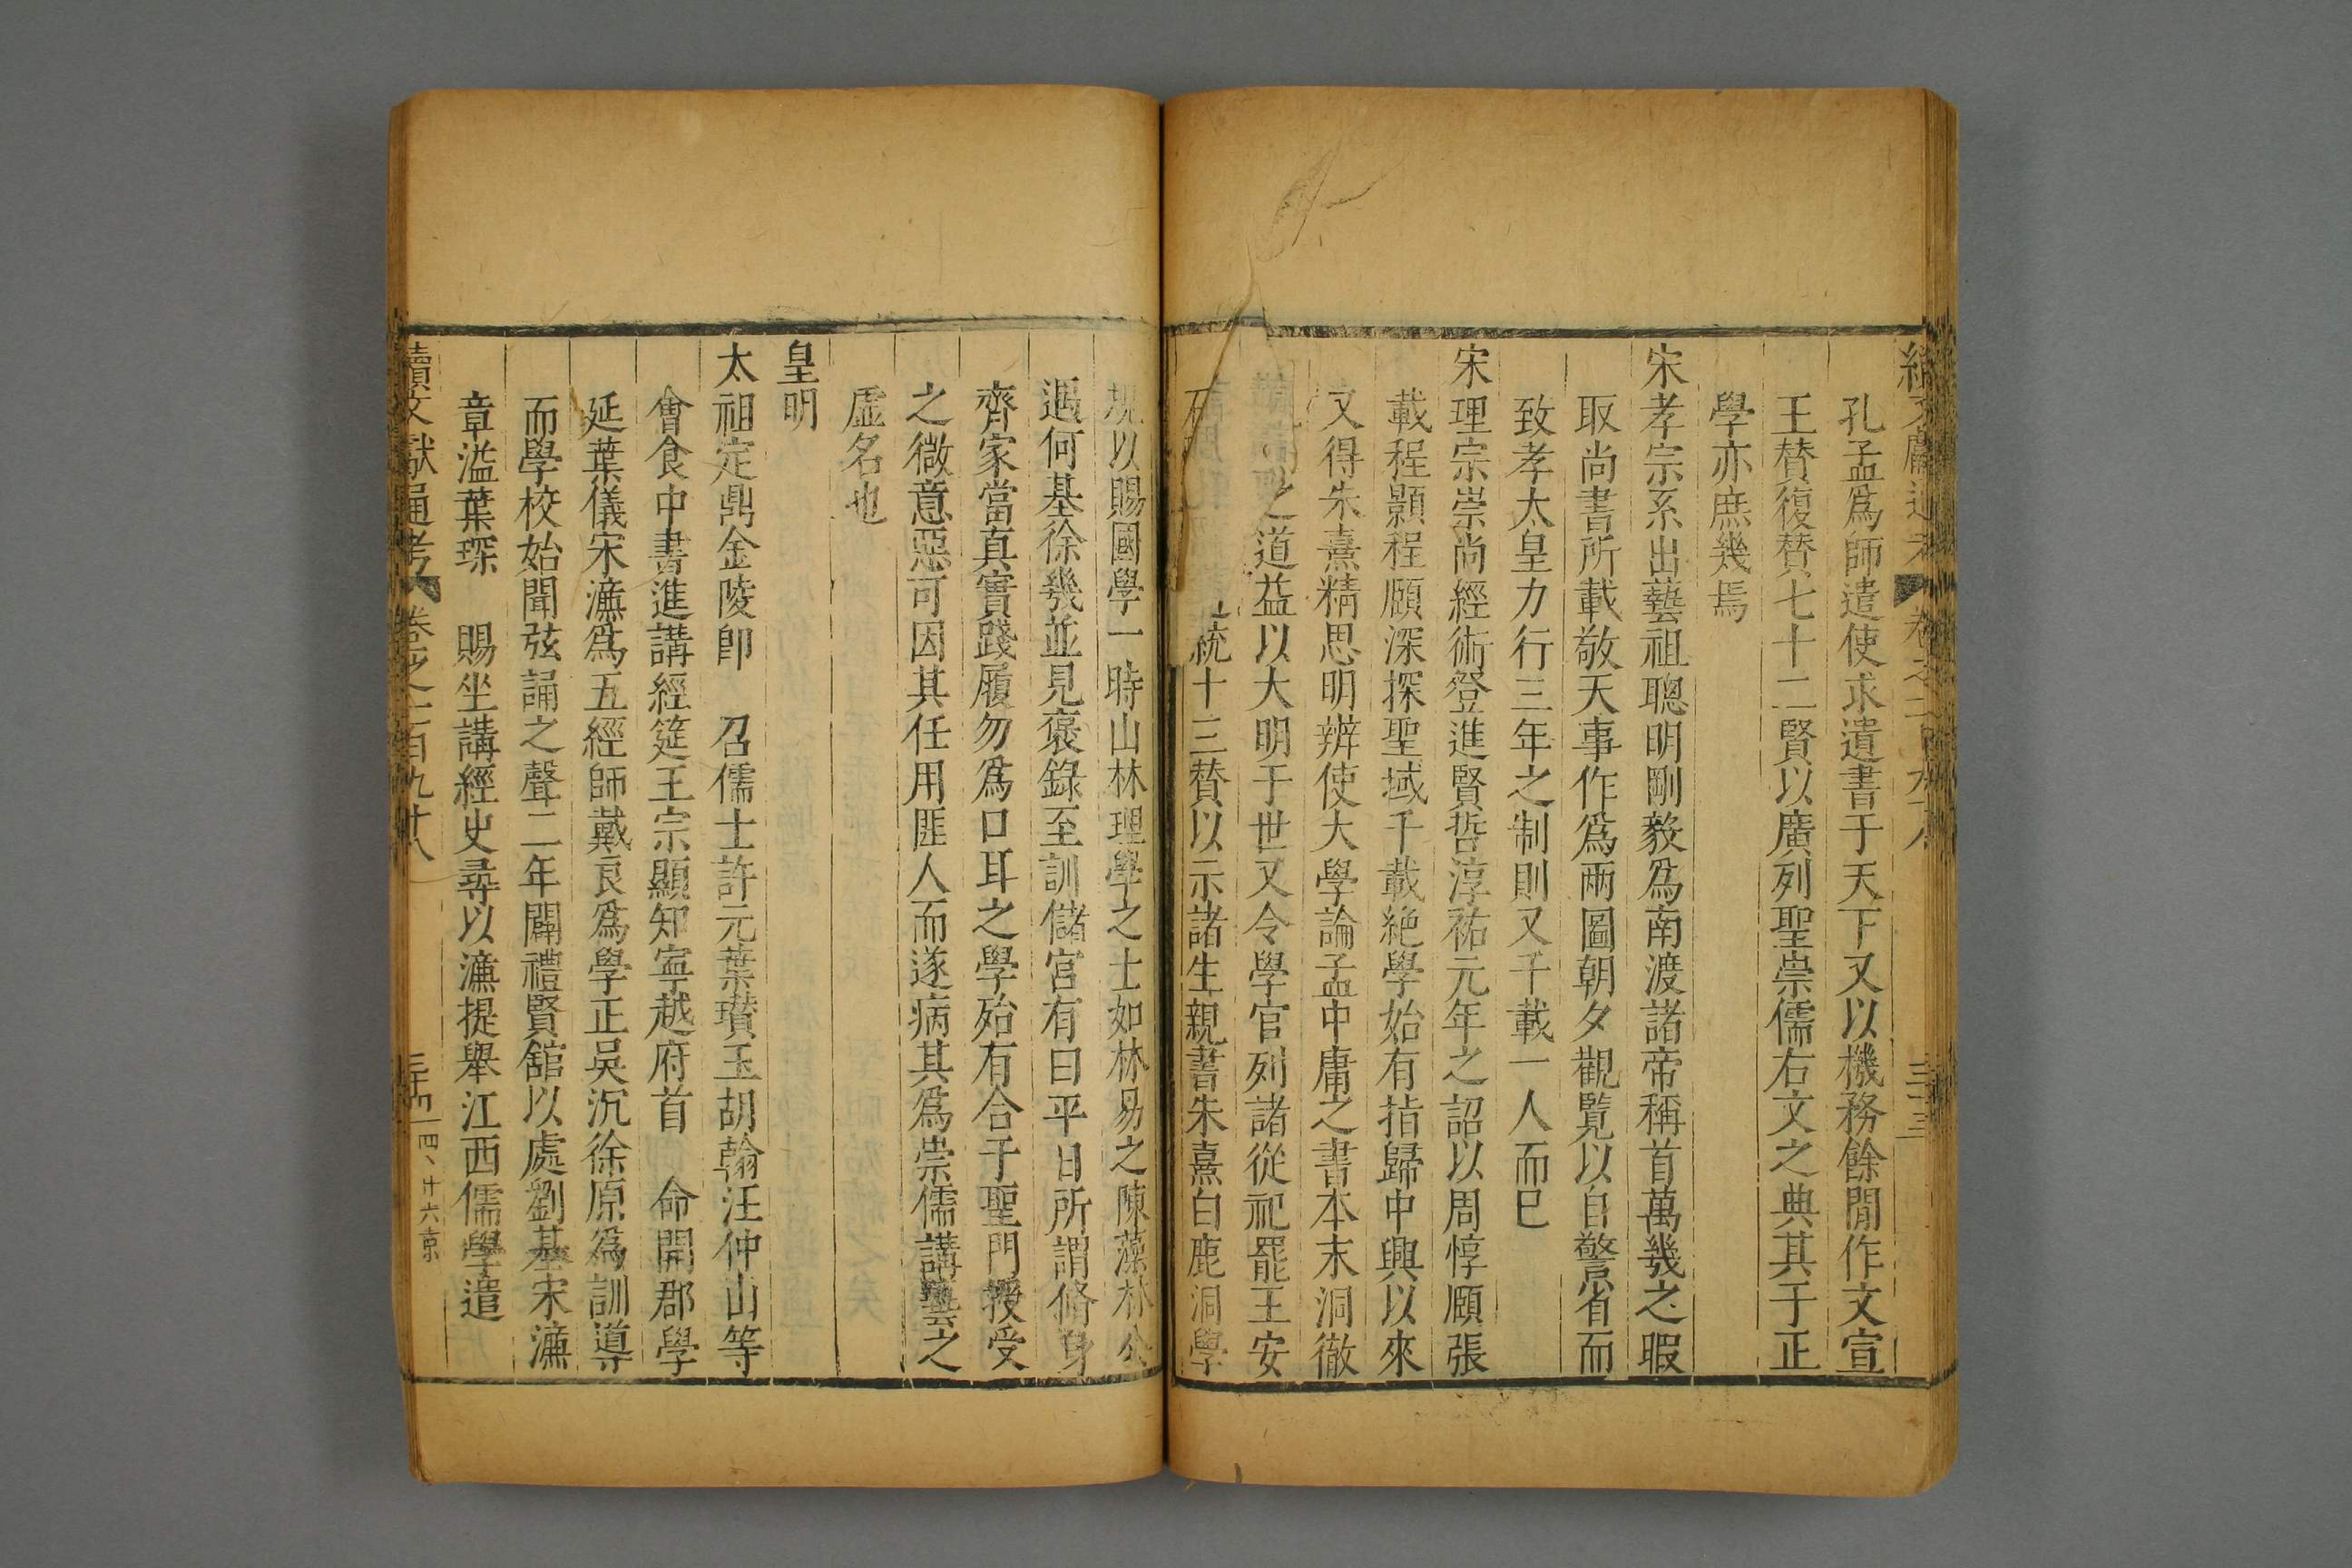 孔孟爲師遣使求遺書于天下又以機務餘閒作文宣
王賛復賛七十二賢以廣列聖崇儒右文之典其于正
學亦庶幾焉
宋孝宗系出藝祖聰明剛毅爲南渡諸帝稱首萬幾之暇
取尚書所載敬天事作爲兩圖朝夕觀覽以自警省而
致孝太皇力行三年之制則又千載一人而已
宋理宗崇尚經術登進賢哲淳祐元年之詔以周惇頤張
載程顥程頤深探聖域千載絶學始有指歸中興以來
文得朱熹精思明辨使大學論孟中庸之書本末洞徹
之道益以大明于世又令學官列諸從祀罷王安
統十三賛以示諸生親書朱熹白鹿洞學
規以賜國學一時山林理學之士如林易之陳藻林公
遇何基徐幾並見褒錄至訓儲宮有曰平日所謂脩身
齊家當真實踐履勿爲口耳之學殆有合于聖門授受
之微意惡可因其任用匪人而遂病其爲崇儒講藝之
虛名也
皇明
太祖定鼎金陵卽 召儒士許元葉瓚玉胡翰汪仲山等
會食中書進講經筵王宗顯知寧越府首 命開郡學
延葉儀宋濂爲五經師戴良爲學正吳沉徐原爲訓導
而學校始聞弦誦之聲二年闢禮賢舘以處劉基宋濂
章溢葉琛 賜坐講經史尋以濂提舉江西儒學遣
續文獻通考 卷之一百九十八 三十四 一四、廿六京